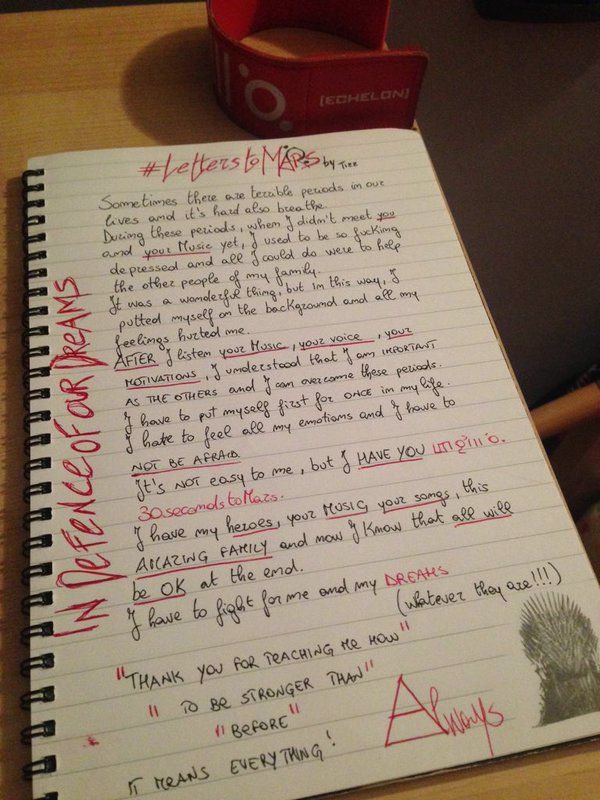 [ECHELON]
#LetterstoMARS by Tizz
Sometimes there are terrible periods in our
lives and it's hard also breathe.
During these periods, when I didn't meet you
and your Music yet, I used to be so fucking
depressed and all I could do were to help
the other people of my family.
It was a wonderful thing, but in this way, I
putted myself on the background and all my
feelings hurted me.
AFTER I listen your Music, your voice, your
MOTIVATIONS, I understood that I am IMPORTANT
AS THE OTHERS and I can overcome these periods.
I have to put myself first for ONCE in my life.
I hate to feel all my emotions and I have to
NOT BE AFRAID.
It's NOT easy to me, but I HAVE YOU
30secondstoMars.
I have my heroes, your MUSIC, your songs, this
AMAZING FAMILY and now I know that all will
be OK at the end.
I have to fight for me and my DREAMS
(whatever they are!!!)
"THANK YOU FOR TEACHING ME HOW"
" TO BE STRONGER THAN"
"BEFORE"
IT MEANS EVERYTHING!
Always
IN DEFENCE OF OUR DREAMS